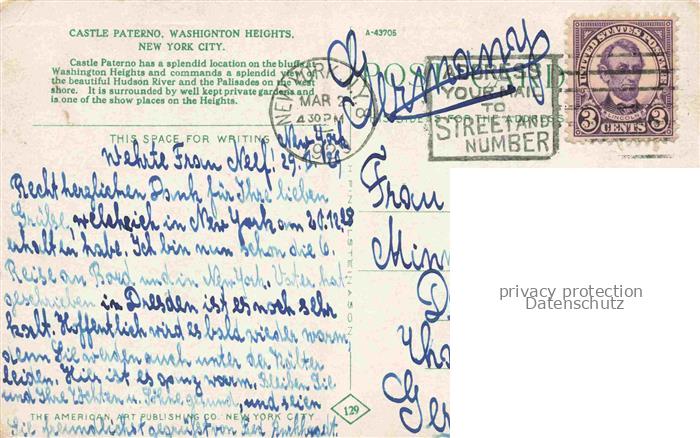 CASTLE PATERNO, WASHIGNTON HEIGHTS,
NEW YORK CITY.
Castle Paterno has a splendid location on the bluffs
Washington Heights and commands a splendid view of
the beautiful Hudson River and the Palisades on the west
shore. It is surrounded by well kept private gardens and
is one of the show places on the Heights.
A-43705
Germany
NEW YORK, N.Y.
MAR 29
4 30 PM
1929
ADDRESS
YOUR MAIL
TO
STREET AND
NUMBER
UNITED STATES POSTAGE
LINCOLN
3 CENTS 3
POST CARD
THIS SIDE IS FOR THE ADDRESS
THIS SPACE FOR WRITING
New York
29.
Wehrte Frau Neef!
Recht herzlichen Dank für Ihre lieben
Grüße, welche ich in New York am 31.12.28
erhalten habe. Ich bin nun schon die 6.
Reise an Bord und in New York. Vater hat
geschrieben in Dresden ist es noch sehr
kalt. Hoffentlich wird es bald wieder warm,
denn Sie werden auch unter der Kälte
leiden. Hier ist es ganz warm. Bleiben Sie
und Ihre Töchter u. Söhne gesund, und seien
Sie freundlichst gegrüßt von
Frau
Minn
D
Tha
Ger
THE AMERICAN ART PUBLISHING CO. NEW YORK CITY
129
privacy protection
Datenschutz